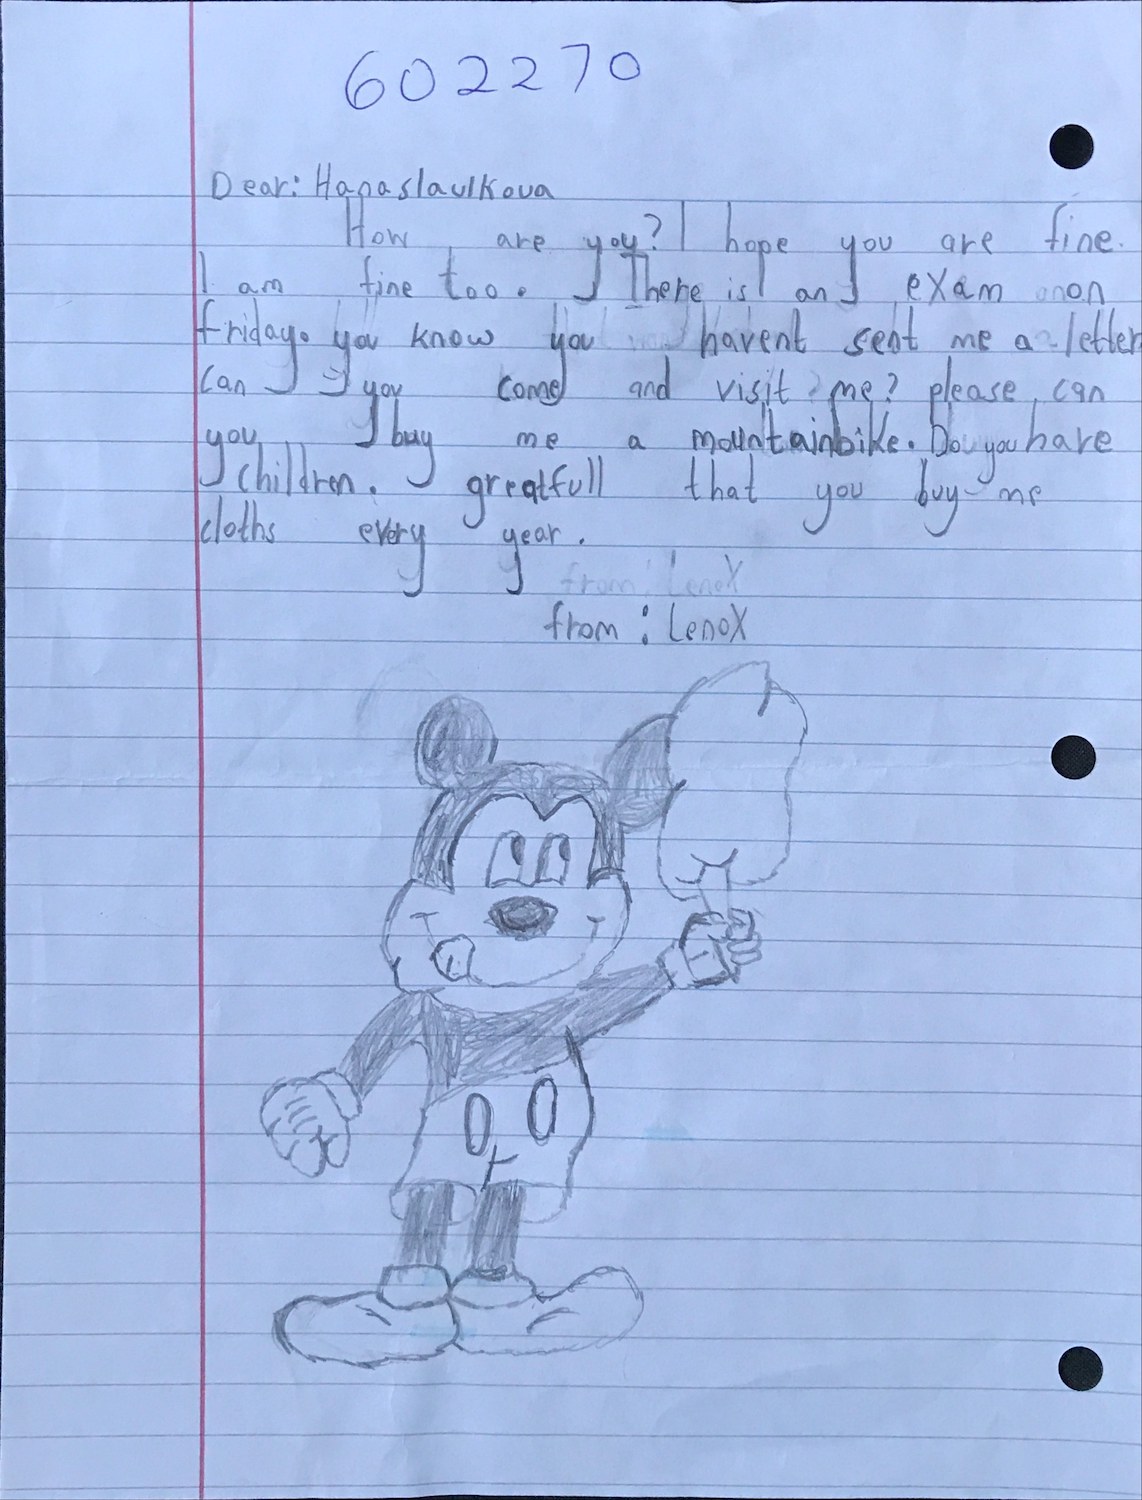 602270
Dear: Hanaslavlkova
How are you? I hope you are fine.
I am fine too. There is an exam on
friday. you know you havent sent me a letter
can you come and visit me? please can
you buy me a mountainbike. Do you have
children. greatfull that you buy me
cloths every year.
from: Lenox
from: Lenox